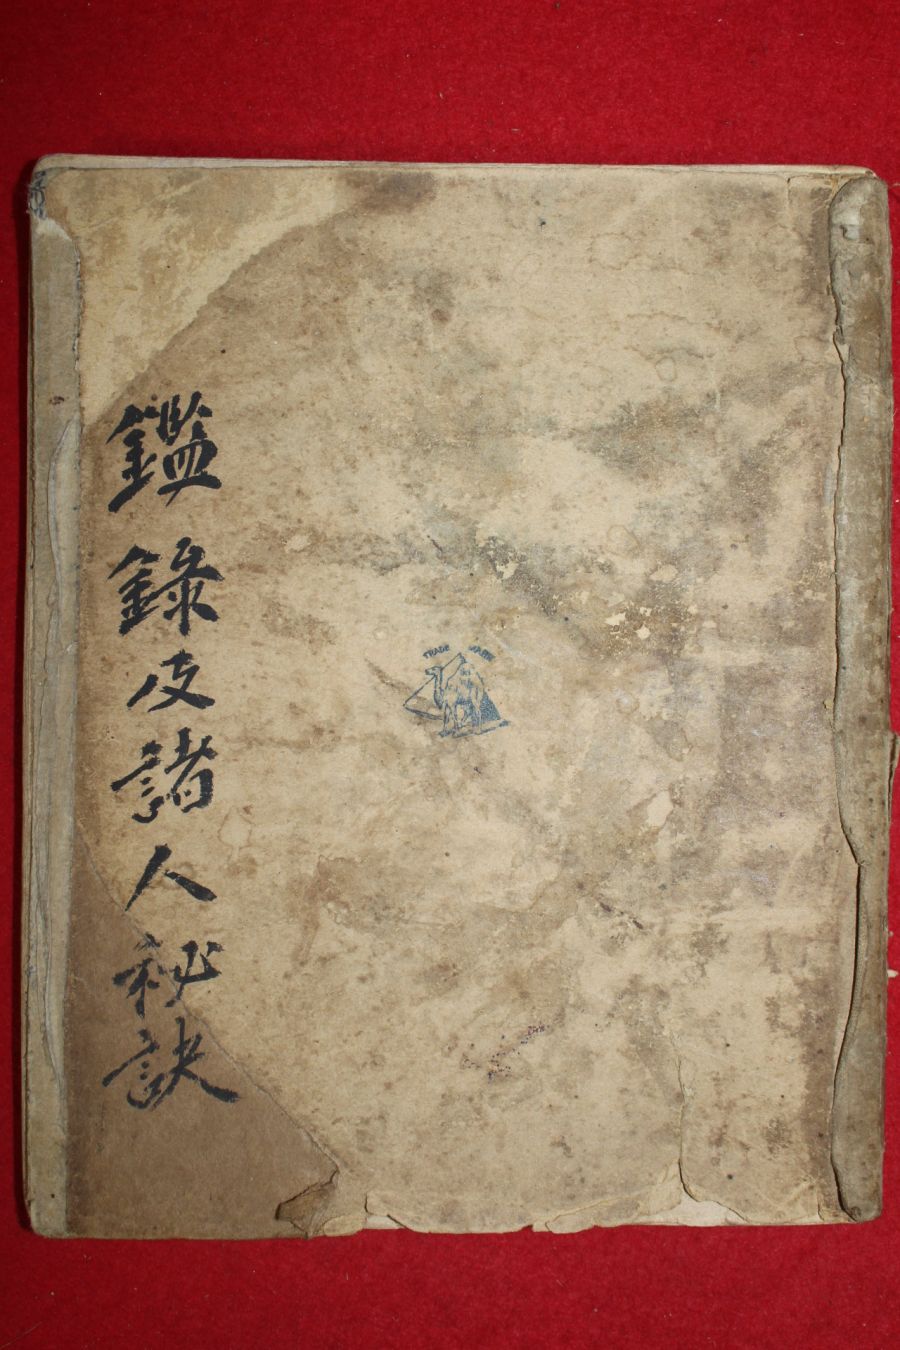 鑑錄及諸人秘訣
TRADE MARK